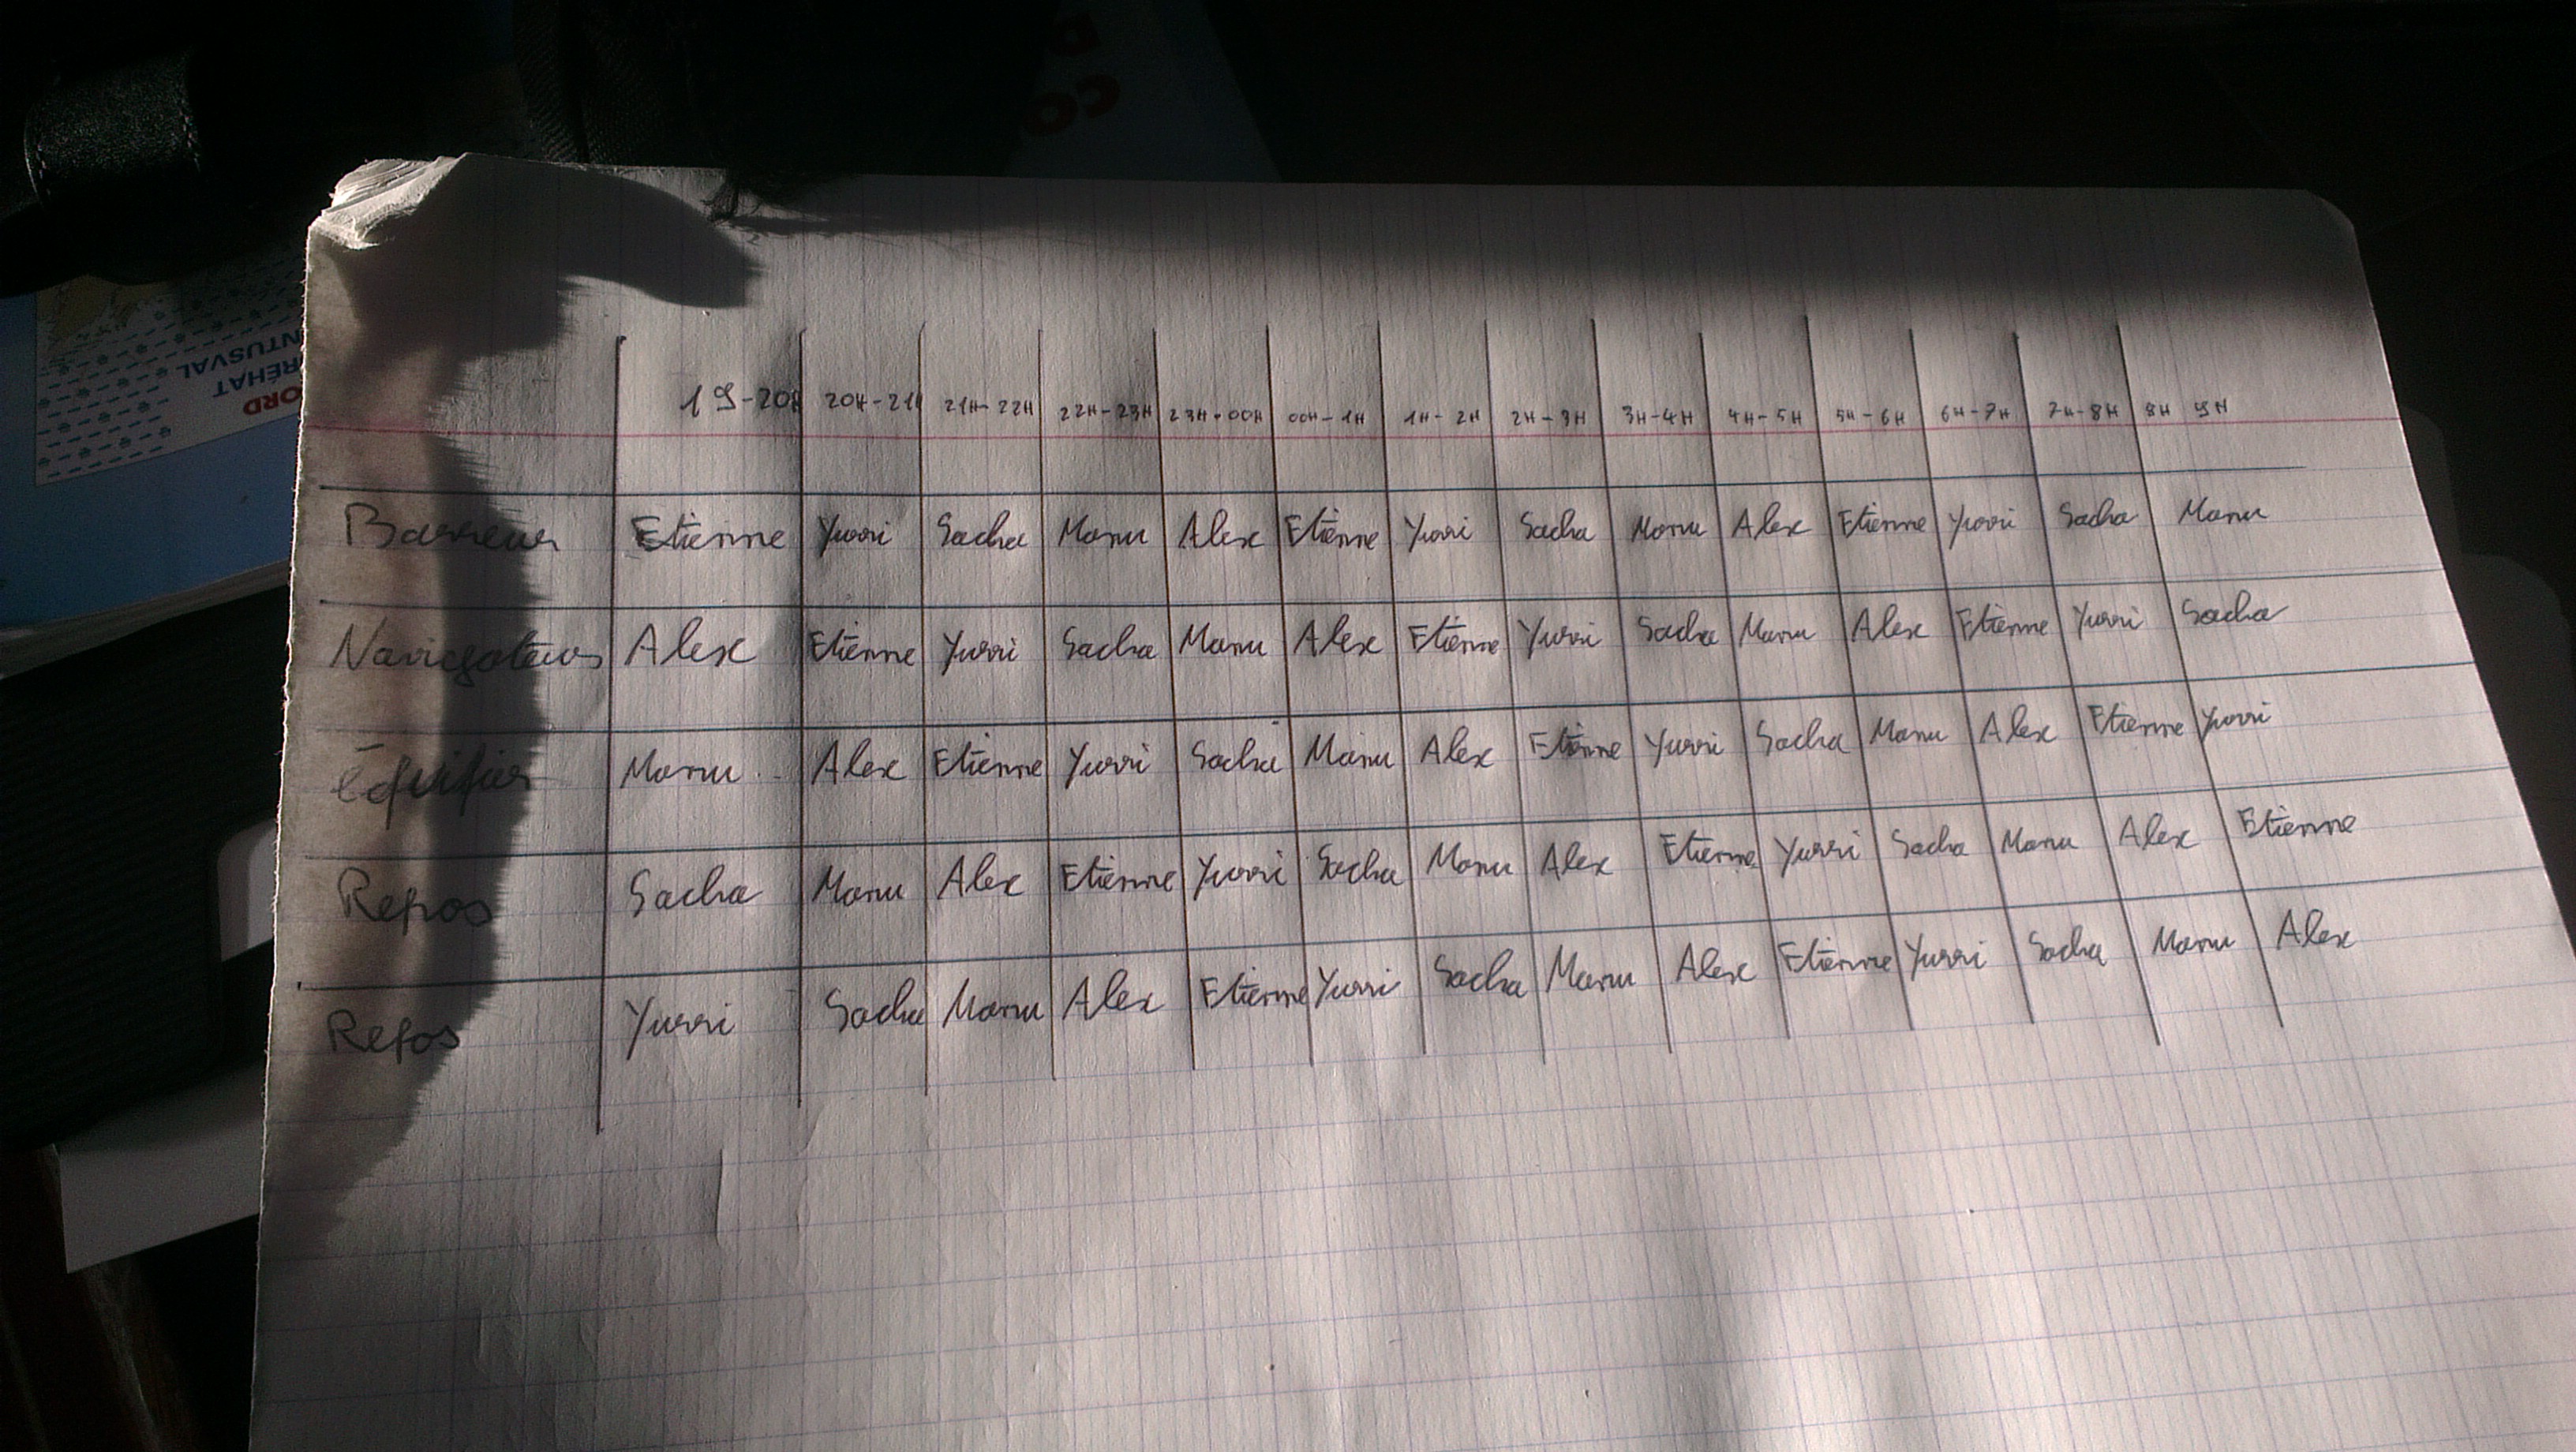 CO
D
NORD
BRÉHAT
PONTUSVAL
19-20H 20H-21H 21H-22H 22H-23H 23H-00H 00H-1H 1H-2H 2H-3H 3H-4H 4H-5H 5H-6H 6H-7H 7H-8H 8H 9H
Barreur Etienne Yurri Sacha Manu Alex Etienne Yurri Sacha Manu Alex Etienne Yurri Sacha Manu
Navigateur Alex Etienne Yurri Sacha Manu Alex Etienne Yurri Sacha Manu Alex Etienne Yurri Sacha
Équipier Manu Alex Etienne Yurri Sacha Manu Alex Etienne Yurri Sacha Manu Alex Etienne Yurri
Repos Sacha Manu Alex Etienne Yurri Sacha Manu Alex Etienne Yurri Sacha Manu Alex Etienne
Repos Yurri Sacha Manu Alex Etienne Yurri Sacha Manu Alex Etienne Yurri Sacha Manu Alex